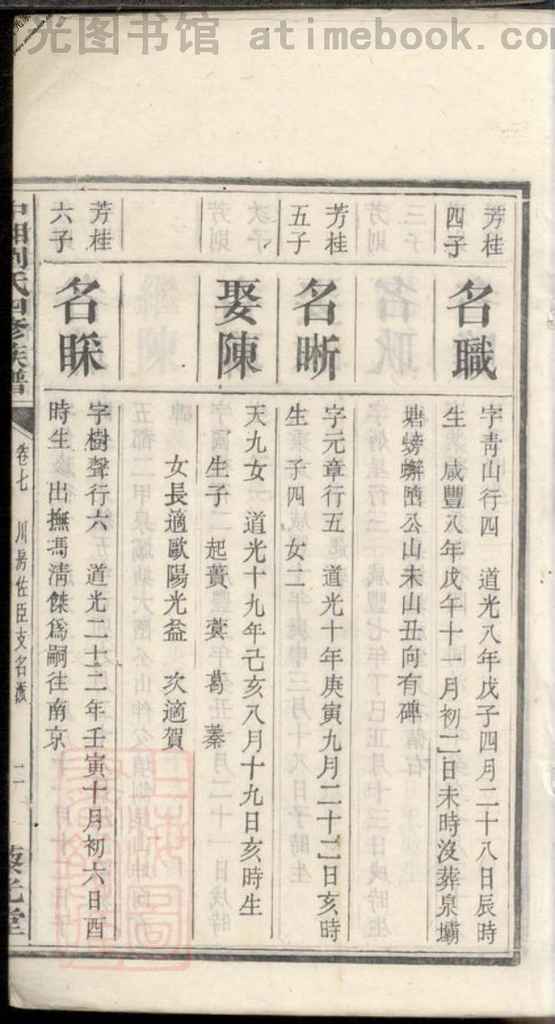 光图书馆 atimebook.com
芳桂
四子
名職
字靑山行四 道光八年戊子四月二十八日辰時
生 咸豐八年戊午十一月初二日未時沒葬泉壩
塘螃蠏嶞公山未山丑向有碑
芳桂
五子
名晰
字元章行五 道光十年庚寅九月二十二日亥時
生 子四 女二
娶陳
天九女 道光十九年己亥八月十九日亥時生
生子 起蕢 蓂 葛 蓁
女長適歐陽光益 次適賀
芳桂
六子
名睬
字樹聲行六 道光二十二年壬寅十月初六日酉
時生 出撫馮淸傑爲嗣往南京
中湘劉氏四修族譜
卷七
佐臣支名派
二